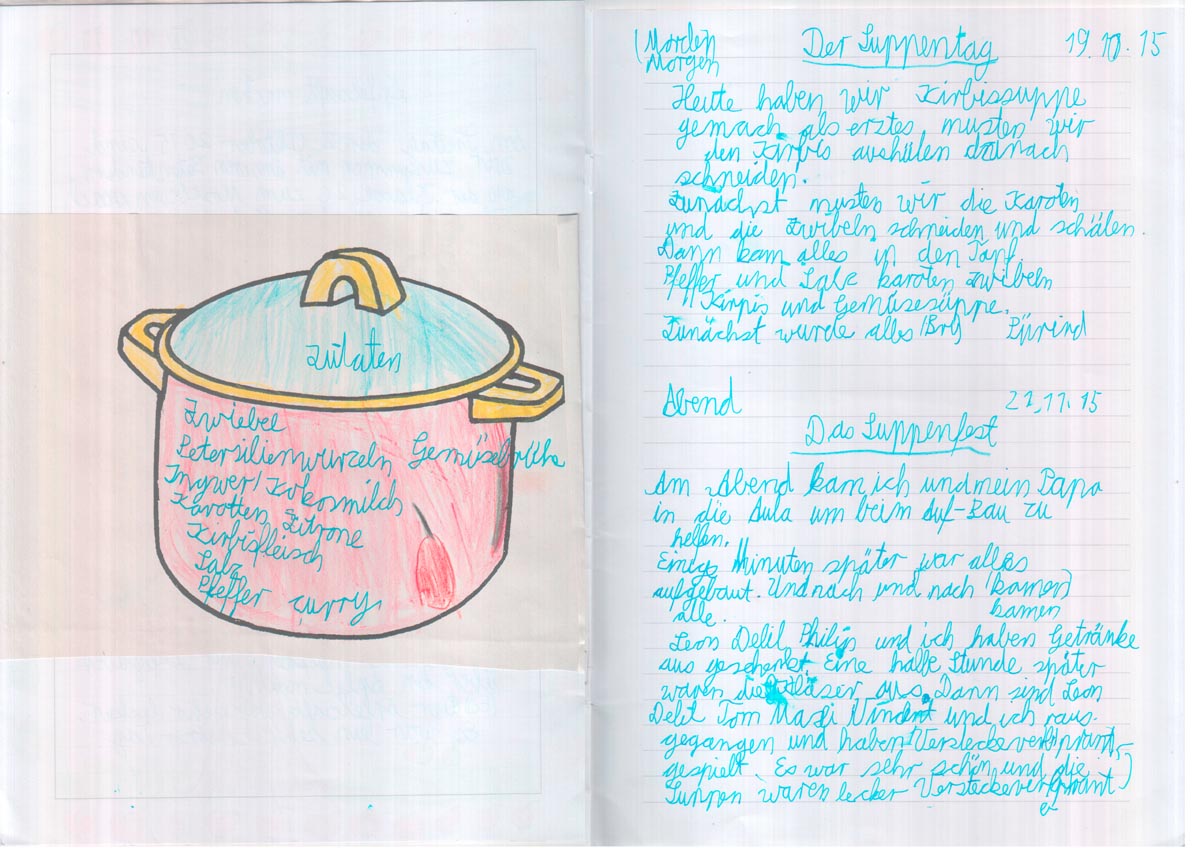 Zutaten
Zwiebel
Petersilienwurzeln Gemüsebrühe
Ingwer/Kokosmilch
Karotten Zitrone
Kirbisfleisch
Salz
Pfeffer curry
(Morden
Morgen
Der Suppentag 19.10.15
Heute haben wir Kirbissuppe
gemach als erztes musten wir
den Kirbis aushülen danach
schneiden.
Zunächst musten wir die Karoten
und die Zwibeln schneiden und schälen.
Dann kam alles in den Topf.
Pfeffer und Salz karoten zwibeln
Kirpis und Gemüsesüppe.
Zunächst wurde alles Pürird
Abend 21.11.15
Das Suppenfest
Am Abend kam ich und mein Papa
in die Aula um beim Auf-Bau zu
helfen.
Einige Minuten später war alles
aufgebaut. Und nach und nach (kamen)
alle. kamen
Leon Delil Philip und ich haben Getränke
aus geschenkt. Eine halbe Stunde später
waren die Gläser aus. Dann sind Leon
Delil Tom und ich raus-
gegangen und haben
gespielt. Es war sehr schön und die
Suppen waren lecker